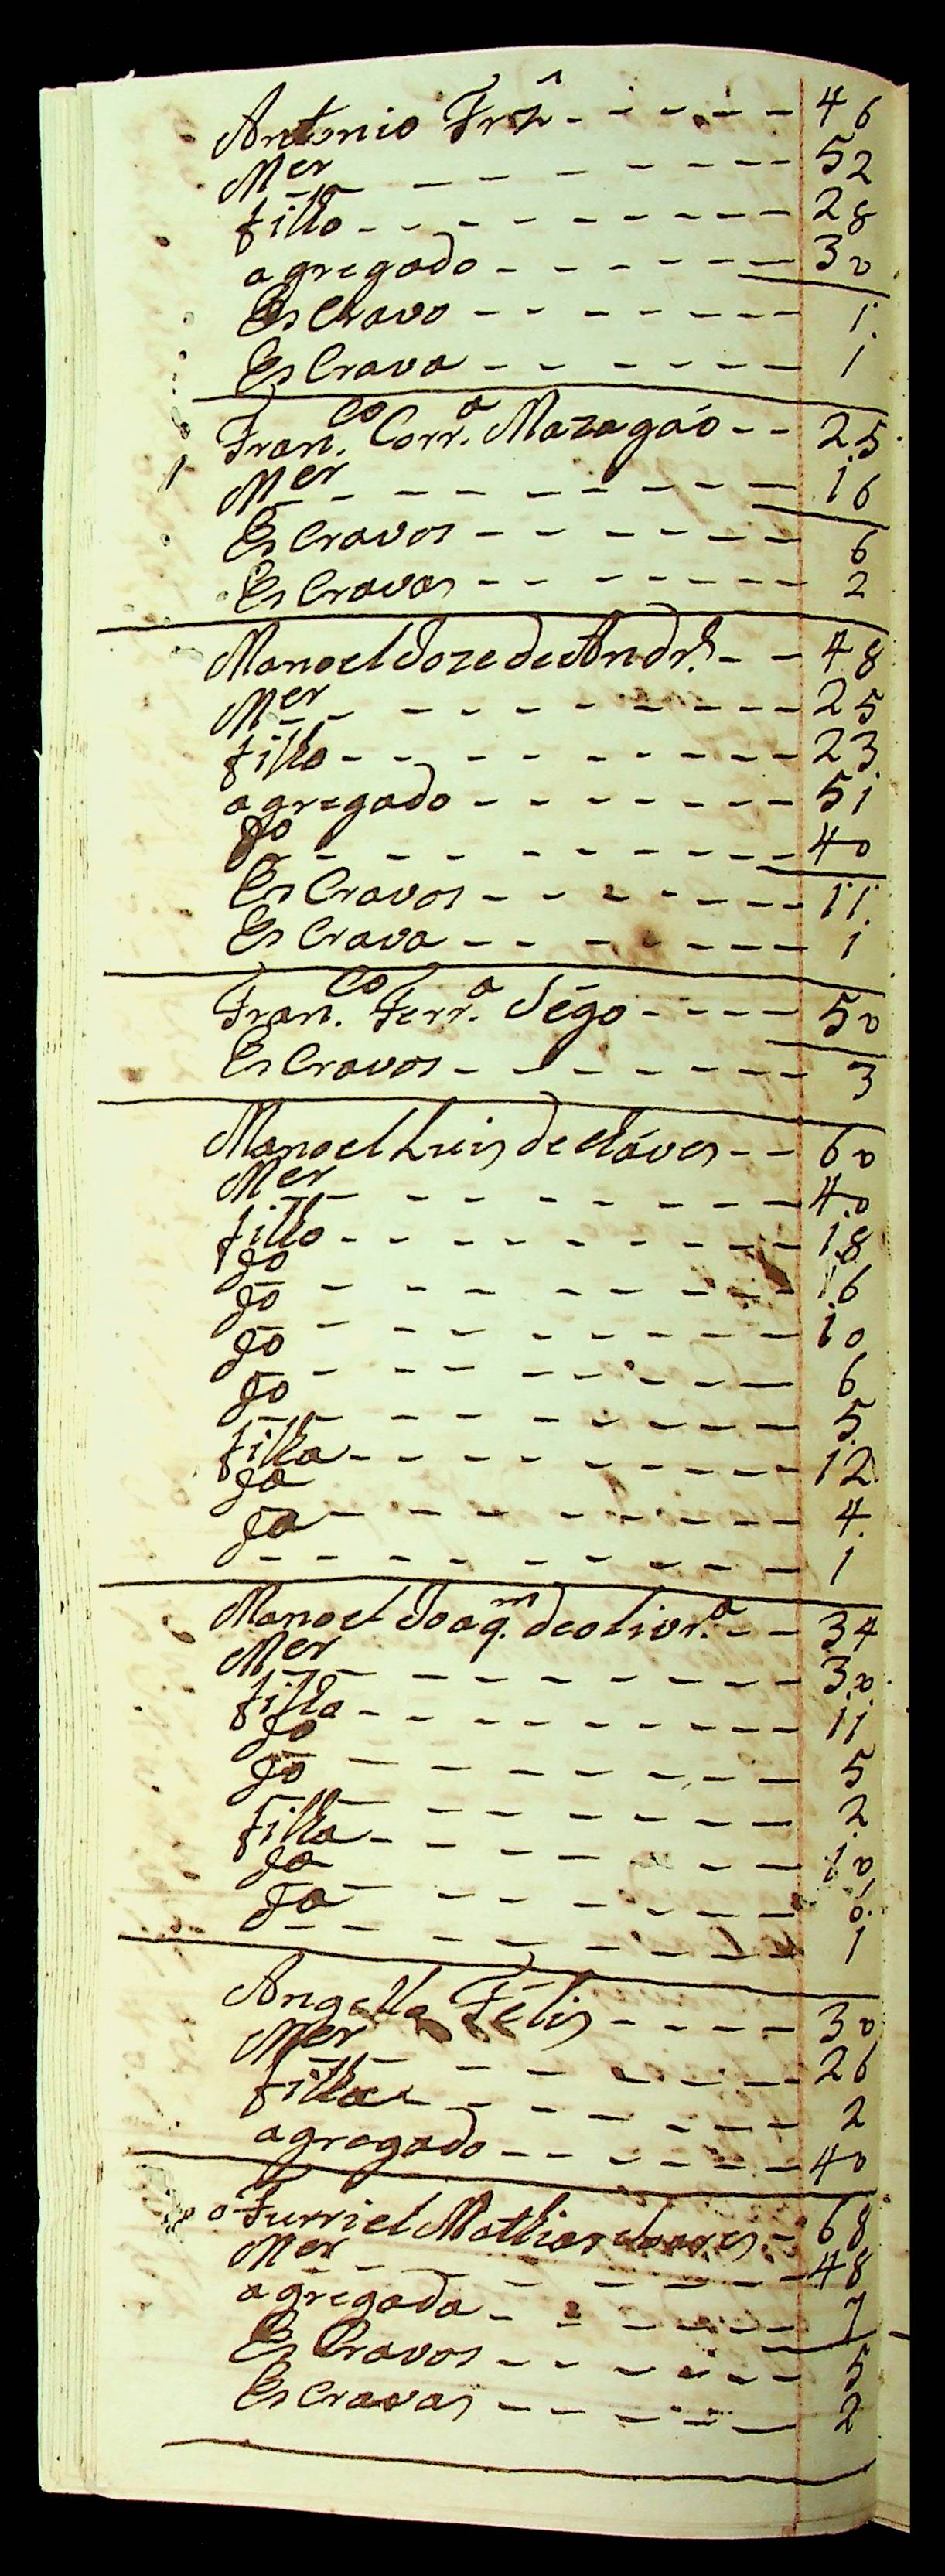 Antonio Frz - - - - - 46
Mer - - - - - - 52
filho - - - - - - - - 28
agregado - - - - - - 30
EsCravo - - - - - - - 1
EsCrava - - - - - - 1
Fran.co Corr.a Mazagaó - - 25
Mer - - - - - - - 16
EsCravos - - - - - - 6
EsCravas - - - - - - 2
Manoel Joze de Andr.e - - 48
Mer - - - - - - - - 25
filho - - - - - - - - 23
agregado - - - - - - - 51
do - - - - - - - - 40
EsCravos - - - - - - - 11
EsCrava - - - - - - - 1
Fran.co Ferr.a Ségo - - - - 50
EsCravos - - - - - - - 3
Manoel Luis de cháves - - 60
Mer - - - - - - - 40
filho - - - - - - - - 18
do - - - - - - - - 16
do - - - - - - - - 10
do - - - - - - - 6
do - - - - - - - 5
filha - - - - - - - - 12
da - - - - - - - 4
da - - - - - - - - 1
Manoel Joaq.m de olivr.a - - 34
Mer - - - - - - - 30
filho - - - - - - - - 11
do - - - - - - - 5
do - - - - - - - 2
filha - - - - - - 10
da - - - - - - 6
da - - - - - - 1
Angello Félis - - - - 30
Mer - - - - - - 26
filha - - - - - - 2
agregado - - - - - - 40
o Furriel Mathias Soares - 68
Mer - - - - - - 48
agregada - - - - - - 7
EsCravos - - - - - - 5
EsCravas - - - - - - 2